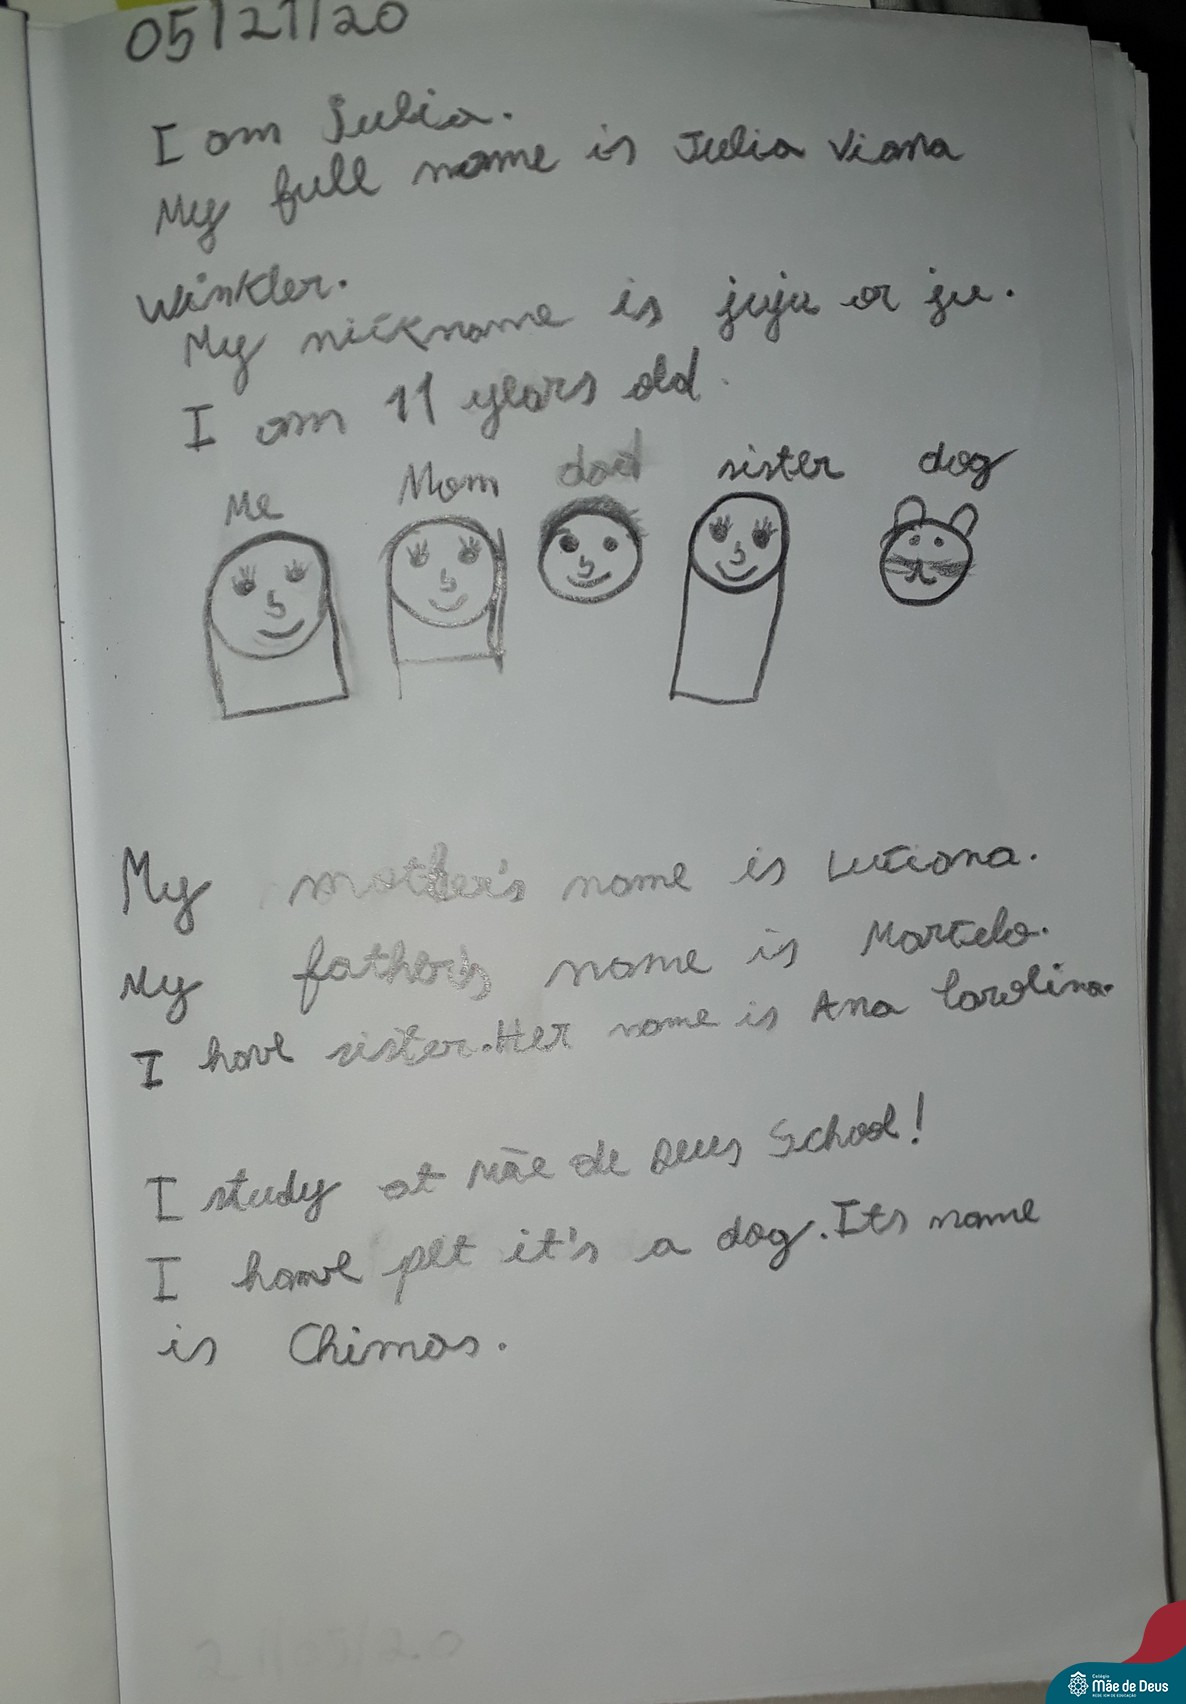 05/21/20
I am Julia.
My full name is Julia Viana
Winkler.
My nickname is juju or ju.
I am 11 years old.
Me Mom dad sister dog
My mother's name is Luciana.
My father's name is Marcelo.
I have sister. Her name is Ana Carolina.
I study at Mãe de Deus School!
I have pet it's a dog. Its name
is Chimas.
21/05/20
Colégio
Mãe de Deus
REDE ICM DE EDUCAÇÃO